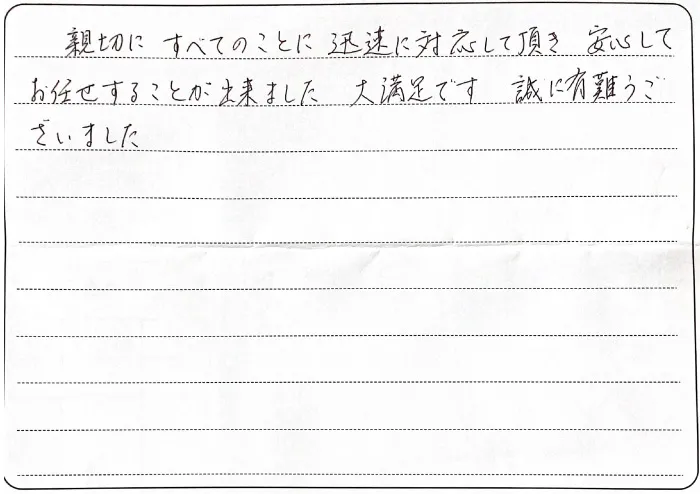 親切に すべてのことに 迅速に対応して頂き 安心して
お任せすることが出来ました 大満足です 誠に有難うご
ざいました